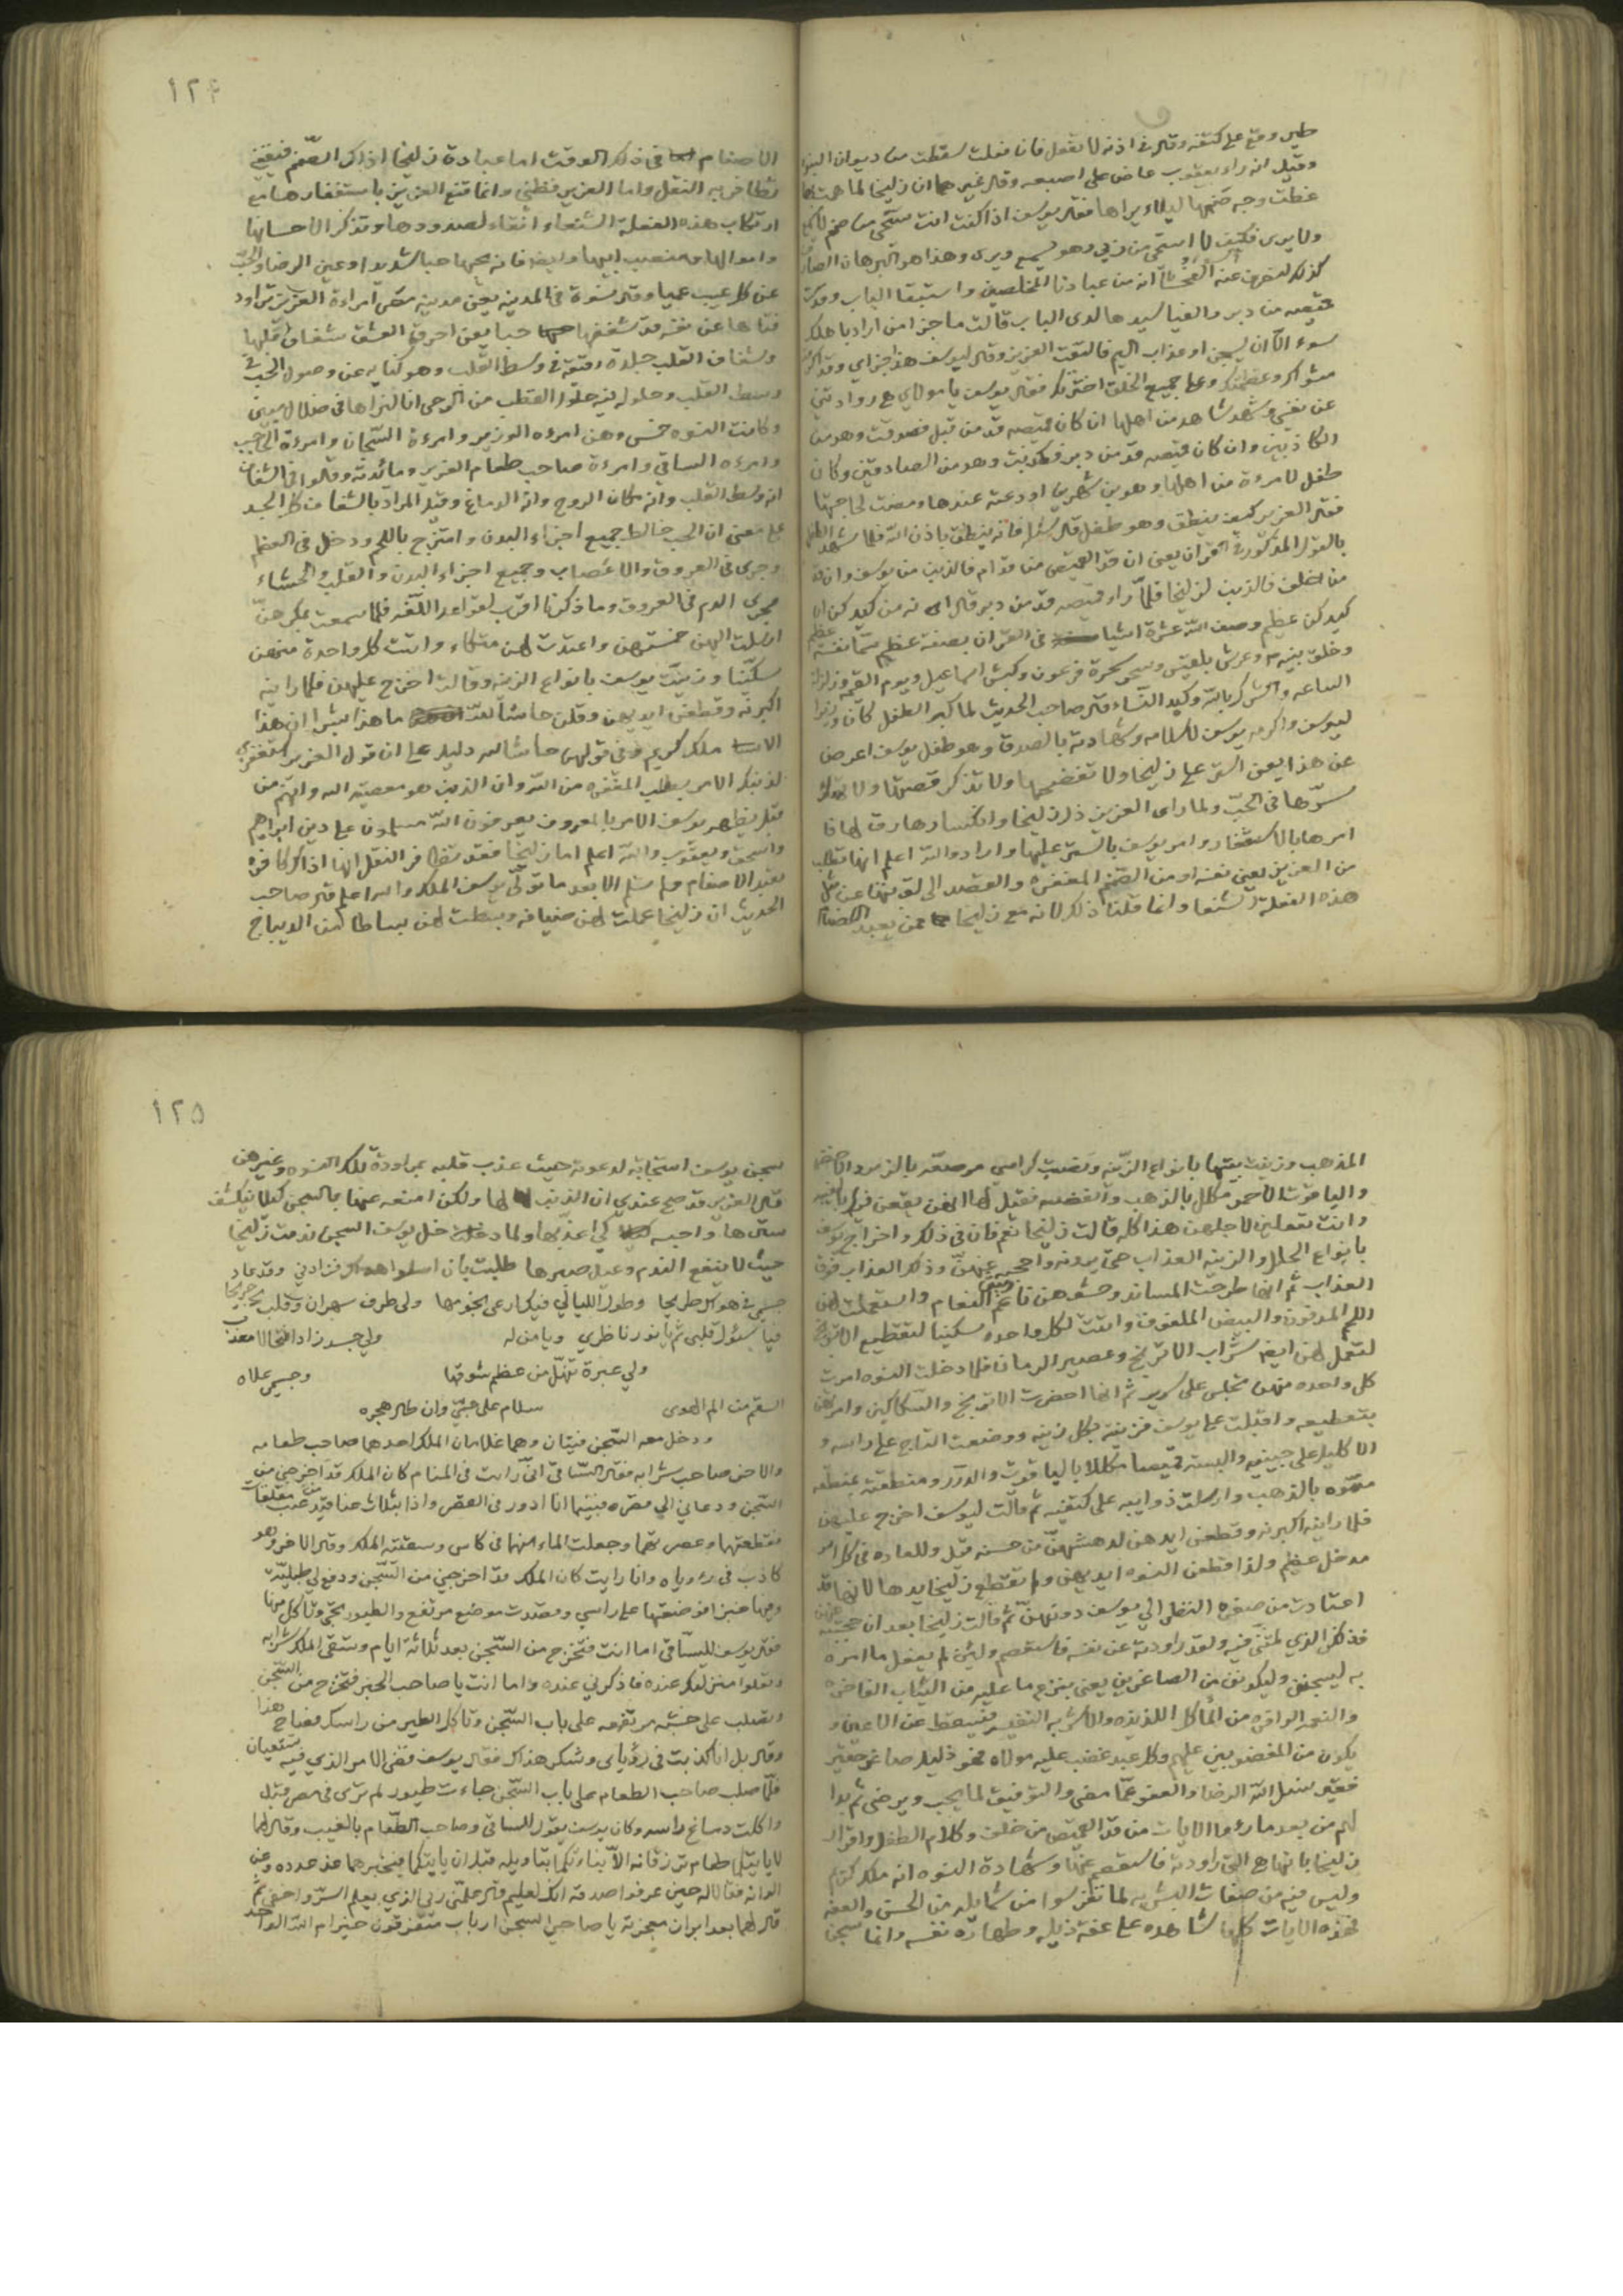 طير وقع على كتفه وقال في اذنه لا تفعل فان فعلت سقطت من ديوان
وقيل انه راى يعقوب عاض على اصبعه وقال غيرهما ان زليخا لما همت
غطت وجه صنمها ليلا يراها فقال يوسف اذا كنت انت تستحي من صنم
ولا يرى فكيف لا استحي من ربي وهو يسمع ويرى وهذا هو البرهان
كذلك لنصرف عنه السوء والفحشا انه من عبادنا المخلصين واستبقا الباب وقدت
قميصه من دبر والفيا سيدها لدى الباب قالت ما جزا من اراد باهلك
سوء الا ان يسجن او عذاب اليم فالتفت العزيز وقال ليوسف هذا جزاي
مثواك وعظمتك وعلى جميع الخلق اخترتك فقال يوسف يا مولاي هي راودتني
عن نفسي وشهد شاهد من اهلها ان كان قميصه قد من قبل فصدقت وهو من
الكاذبين وان كان قميصه قد من دبر فكذبت وهو من الصادقين وكان
طفل لامرءة من اهلها وهو بن شهرين اودعته عندها ومضت لحاجتها
فقال العزيز كيف ينطق وهو طفل قال سئله فانه ينطق باذن الله فلما شهد
بالقول المذكور في القران يعني ان قد القميص من قدام فالذنب من يوسف وان قد
من خلف فالذنب لزليخا فلما راى قميصه قد من دبر قال انه من كيدكن ان
كيدكن عظيم وصف الله عشرة اشيا في القران بصفة عظيم
وخلق نبيه وعرش بلقيس وسحر سحرة فرعون وكبش اسماعيل ويوم القيمه وزلزلة
الساعه والشرك بالله وكيد النساء قال صاحب الحديث لما كبر الطفل كان
ليوسف واكرمه يوسف لاسلامه وشهادته بالصدق وهو طفل يوسف اعرض
عن هذا يعني استر على زليخا ولا تفضحها ولا تذكر قصتها ولا
سرها في الحب ولما راى العزيز ذل زليخا وانكسارها رق لها
امرها بالاستغفار وامر يوسف بالستر عليها واراد والله اعلم انها تطلب
من العزيز يعني نفسه او من الصنم المغفرة والقصد الى توبتها عن مثل
هذه الفعلة الشنعا وانما قلنا ذلك لانه مع زليخا ممن يعبد
١٢٤
الاصنام في ذلك الوقت اما عبادة زليخا اذاك الصنم فيقيني
تظافر به النقل واما العزيز فظني وانما قنع العزيز باستغفارها مع
ارتكاب هذه الفعلة الشنعاء اتقاء لصدودها وتذكر الاحسانها
عن كل عيب عميا وقال نسوة في المدينه يعني مدينه مصر امراءة العزيز تراود
فتاها عن نفسه قد شغفها حبا يعني احرق العشق شغاف قلبها
وشغاف القلب جلدة رقيقة في وسط القلب وهو كنايه عن وصول الحب في
وسط القلب وحلوله فيه حلول القطب من الرحى انا لنراها في ضلال مبين
وكانت النسوه خمس وهن امرءه الوزير وامرءة السجان وامرءة الحاجب
وامرءه الساقي وامرءة صاحب طعام العزيز ومائدته وقالوا في الشغاف
انه وسط القلب وانه مكان الروح وانه الدماغ وقيل المراد بالشغاف كل الجسد
على معنى ان الحب خالط جميع اجزاء البدن وامتزج باللحم ودخل في العظم
وجرى في العروق والاعصاب وجميع اجزاء البدن والقلب والحشاء
مجرى الدم في العروق وما ذكرنا اقرب لقواعد اللغه فلما سمعت بمكرهن
ارسلت اليهن خمستهن واعتدت لهن متكاء واتت كل واحدة منهن
سكينا وزينت يوسف بانواع الزينه وقالت اخرج عليهن فلما راينه
اكبرنه وقطعن ايديهن وقلن حاشا لله ما هذا بشرا ان هذا
الا ملك كريم وفي قولهن حاشا لله دليل على ان قول العزيز استغفري
لذنبك الامر بطلب المغفره من الله وان الذنب هو معصية الله وانهم من
قبل يظهر يوسف الامر بالمعروف يعرفون الله مسلمون على دين ابراهيم
واسحق ويعقوب والله اعلم اما زليخا فقد تظافر النقل انها اذاك كافره
تعبد الاصنام ولم تسلم الا بعد ما تولى يوسف الملك والله اعلم قال صاحب
الحديث ان زليخا عملت لهن ضيافه وبسطت لهن بساطا من الديباج
المذهب وزينت بيتها بانواع الزينه ونصبت كراسي مرصعه بالزمرد الاخضر
والياقوت الاحمر مكلل بالذهب والفضه فقيل لها انهن يقعن فيك بالغيبه
وانت تفعلين لاجلهن هذا كله قالت زليخا نعم فان في ذلك واخراج يوسف
بانواع الحلل والزينه العذاب حتى يرونه واحجبه عنهن وذلك العذاب فوق
العذاب ثم انها طرحت المساند وحشوهن ناعم ريش النعام واستعملت لهن
اللحم المدفون والبيض الملفوف واتت لكل واحده سكينا لتقطيع الاترنج
لتعمل لهن ايضا شراب الاترنج وعصير الرمان فلما دخلت النسوه امرت
كل واحده منهن تجلس على سرير ثم انها احضرت الاترنج والسكاكين وامرتهن
بتقطيعه واقبلت على يوسف فزينته بكل زينه ووضعت التاج على راسه و
الاكليل على جبينه والبسته قميصا مكللا بالياقوت والدرر ومنطقته بمنطقه
مموه بالذهب وارسلت ذوايبه على كتفيه ثم قالت ليوسف اخرج عليهن
فلما راينه اكبرنه وقطعن ايديهن لدهشتهن من حسنه قيل وللعاده في كل امر
مدخل عظيم ولذا قطعن النسوه ايديهن ولم تقطع زليخا يدها لانها قد
اعتادت من صغره النظر الى يوسف دونهن ثم قالت زليخا بعد ان حجبته عنهن
فذلكن الذي لمتنني فيه ولقد راودته عن نفسه فاستعصم ولئن لم يفعل ما امره
به ليسجنن وليكونن من الصاغرين يعني ينزع ما عليه من الثياب الفاخره
والنعم الوافره من المأكل اللذيذه والاشربه النفيسه فيسقط عن الاعين و
يكون من المغضوبين عليهم وكل عبد غضب عليه مولاه فهو ذليل صاغر حقير
فقير نسئل الله الرضا والعفو عما مضى والتوفيق لما يحب ويرضى ثم بدا
لهم من بعد ما راءوا الايات من قد القميص من خلف وكلام الطفل واقرار
زليخا بانها هي التي راودته فاستعصم عنها وشهادة النسوه انه ملك كريم
وليس فيه من صفات البشريه لما تفرسوا من شمايله من الحسن والعفه
فهذه الايات كلها شاهده على عفة ذيله وطهارة نفسه وانما سجن
١٢٥
سجن يوسف استجابة لدعوته حيث عذب قلبه بمراودة تلك النسوه وغيرهن
قال العزيز قد صح عندي ان الذنب لها ولكن امنعه عنها بالسجن كيلا ينكشف
سترها واحبسه كي اعذبها ولما دخل يوسف السجن ندمت زليخا
حيث لا ينفع الندم وعيل صبرها طلبت بان فزادني وقد عاد
جسمي في هواك طريحا وطول الليالي فيك ارعى نجومها ولي طرف سهران وقلب
فيا سئول قلبي ثم يا نور ناظري ويا من له ولي جسد زاد انتحالا معذب
ولي عبرة تنهل من عظم شوقها وجسمي علاه
السقم من الم الهوى سلام على حبي وان طال هجره
ودخل معه السجن فتيان وهما غلامان الملك احدهما صاحب طعامه
والاخر صاحب شرابه فقال الساقي اني رايت في المنام كان الملك قد اخرجني من
السجن ودعاني الى قصره فبينما انا ادور في القصر واذا بثلاث عناقيد من عنب معلقات
فقطعتها وعصرتها وجعلت الماء منها في كاس وسقيته الملك وقال الاخر وهو
كاذب في رءوياه وانا رايت كان الملك قد اخرجني من السجن ودفع لي طبليه
وفيها خبزا فوضعتها على راسي وصعدت موضع مرتفع والطيور تجي وتاكل منها
فقال يوسف للساقي اما انت فتخرج من السجن بعد ثلاثة ايام وتسقى الملك شرابه
وتعلوا منزلتك عنده فاذكرني عنده واما انت يا صاحب الخبز فتخرج من السجن
وتصلب على خشبه مرتفعه على باب السجن وتاكل الطير من راسك فصاح هذا
وقال بل انا كذبت في رؤياى وشكر هذاك فقال يوسف قضى الامر الذي فيه تستفتيان
فلما صلب صاحب الطعام على باب السجن جاءت طيور لم ترى في مصر قبل
واكلت دماغ راسه وكان يوسف يقول للساقي وصاحب الطعام بالغيب وقال لهما
لا ياتيكما طعام ترزقانه الا نباءتكما بتاويله قبل ان ياتيكما فيخبرهما عن عدده وعن
الوانه فقالا له حين عرفوا صدقه انك لعليم قال علمني ربي الذي يعلم السر واخفى ثم
قال لهما بعد ابراز معجزته يا صاحبي السجن ارباب متفرقون خير ام الله الواحد